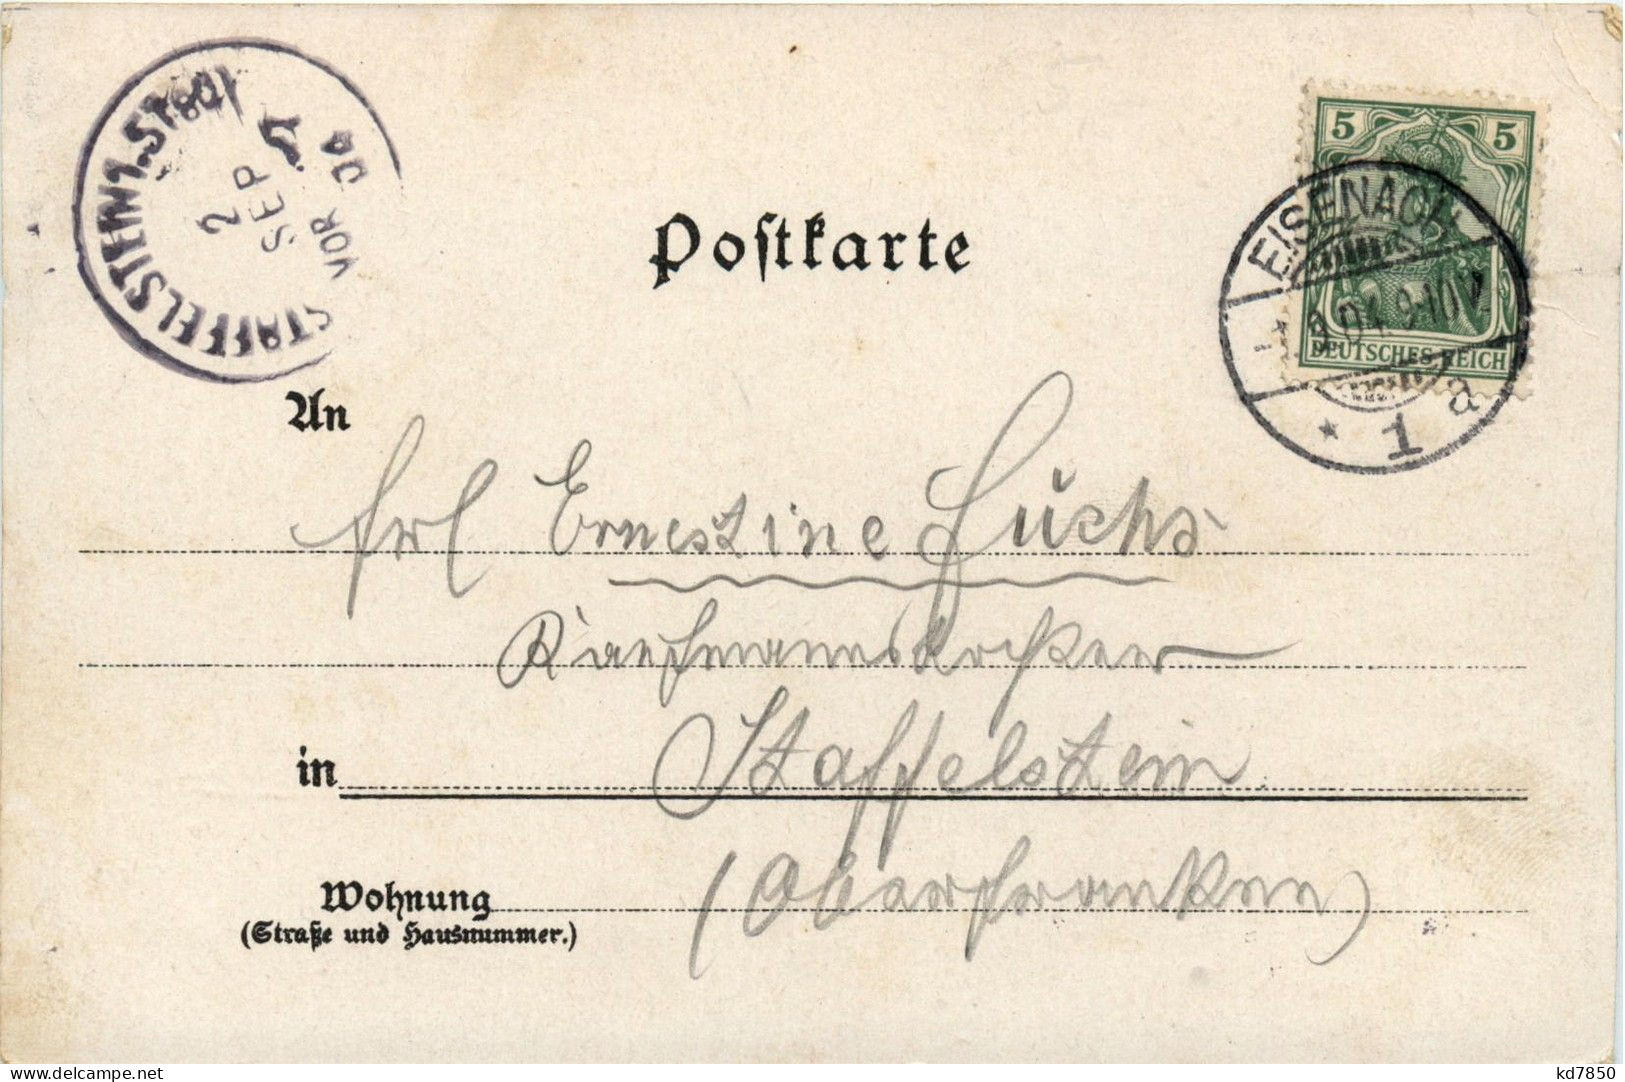 STAFFELSTEIN
2
SEP
VOR
04
5 5
DEUTSCHES REICH
EISENACH
9.04.9-10V.
* 1 a
Postkarte
An
Frl Ernestine Fuchs
in Staffelstein
(Oberfranken)
Wohnung
(Straße und Hausnummer.)
kd7850